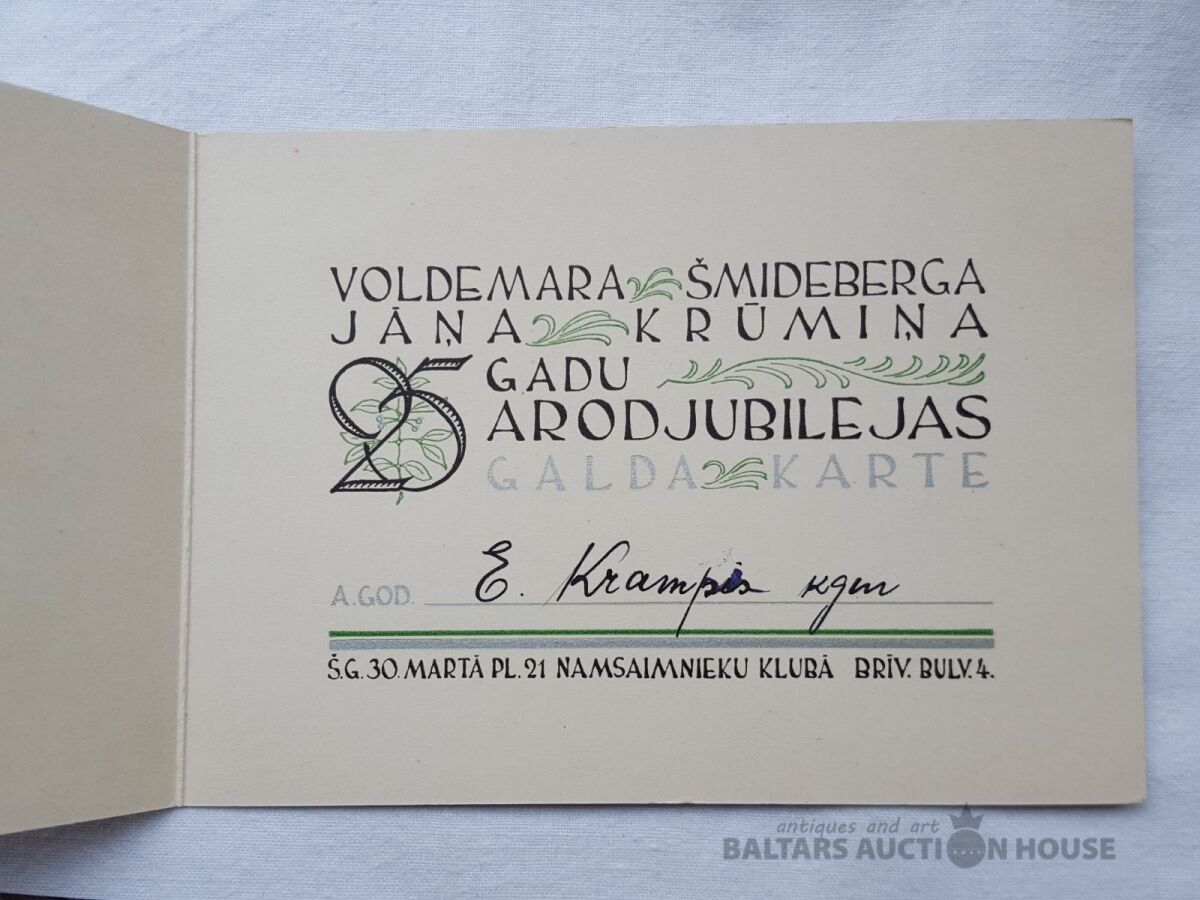 VOLDEMARA ŠMIDEBERGA
JĀŅA KRŪMIŅA
25 GADU
ARODJUBILEJAS
GALDA KARTE
A. GOD. E. Krampis kgm
Š.G. 30. MARTĀ PL. 21 NAMSAIMNIEKU KLUBĀ BRĪV. BULV. 4.
antiques and art
BALTARS AUCTION HOUSE